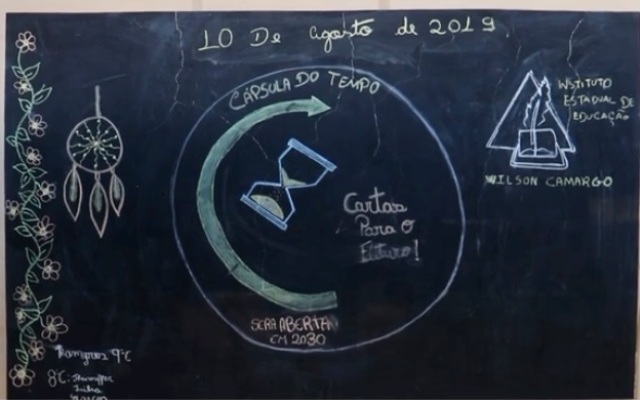 10 De Agosto de 2019
CÁPSULA DO TEMPO
Cartas
Para o
Futuro!
SERÁ ABERTA
EM 2030
INSTITUTO
ESTADUAL DE
EDUCAÇÃO
WILSON CAMARGO
9°C
8°C: